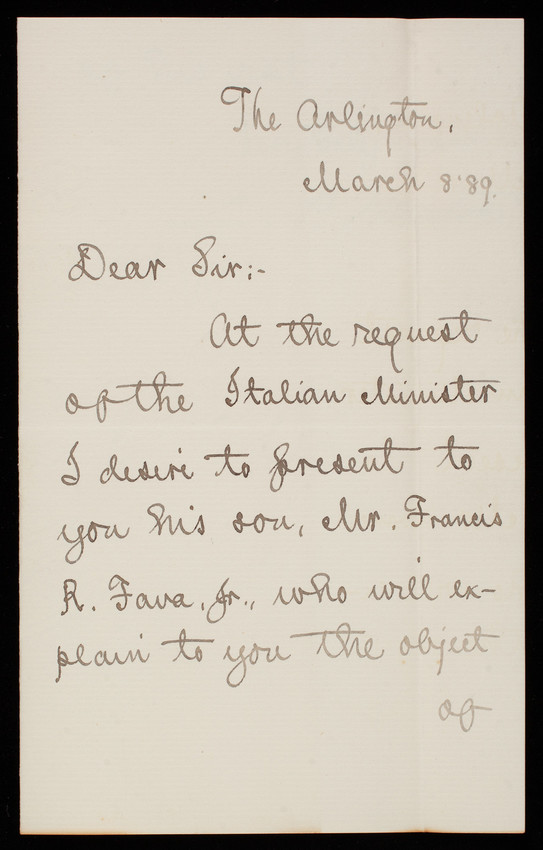 The Arlington,
March 8 '89.
Dear Sir:-
At the request
of the Italian Minister
I desire to present to
you his son, Mr. Francis
R. Fava, Jr., who will ex-
plain to you the object
of